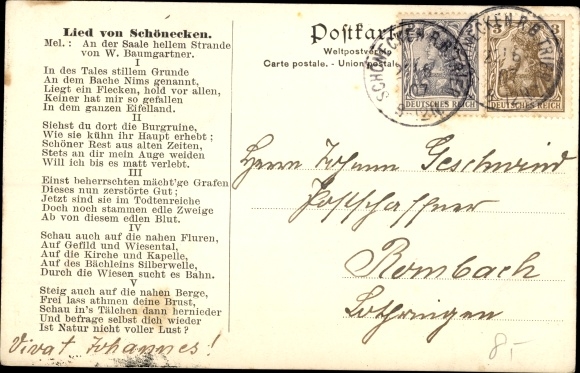 Lied von Schönecken.
Mel.: An der Saale hellem Strande
von W. Baumgartner.
I
In des Tales stillem Grunde
An dem Bache Nims genannt,
Liegt ein Flecken, hold vor allen,
Keiner hat mir so gefallen
In dem ganzen Eifelland.
II
Siehst du dort die Burgruine,
Wie sie kühn ihr Haupt erhebt;
Schöner Rest aus alten Zeiten,
Stets an dir mein Auge weiden
Will ich bis es matt verlebt.
III
Einst beherrschten mächt'ge Grafen
Dieses nun zerstörte Gut;
Jetzt sind sie im Totenreiche
Doch noch stammen edle Zweige
Ab von diesem edlen Blut.
IV
Schau auch auf die nahen Fluren,
Auf Gefild und Wiesental,
Auf die Kirche und Kapelle,
Auf des Bächleins Silberwelle,
Durch die Wiesen sucht es Bahn.
V
Steig auch auf die nahen Berge,
Frei lass athmen deine Brust,
Schau in's Tälchen dann hernieder
Und befrage selbst dich wieder
Ist Natur nicht voller Lust?
Vivat Johannes!
Postkarte
Weltpostverein
Carte postale. - Union postale
SCHÖNECKEN
DEUTSCHES REICH
3 3
DEUTSCHES REICH
Herrn Johann Geschwind
Postschaffner
Rombach
Lothringen
8,-